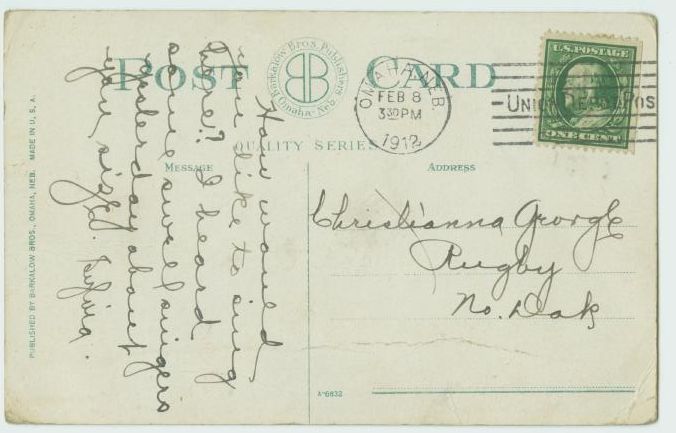 POST CARD
Barkalow Bros. Publishers
Omaha-Neb.
QUALITY SERIES
OMAHA, NEB.
FEB 8
3 30 PM
1912
U.S. POSTAGE
ONE CENT
MESSAGE
ADDRESS
How would
you like to sing
here? I heard
some swell singers
yesterday about
your size.
Christianna George
Rugby
No. Dak
A-6832
PUBLISHED BY BARKALOW BROS., OMAHA, NEB. MADE IN U. S. A.